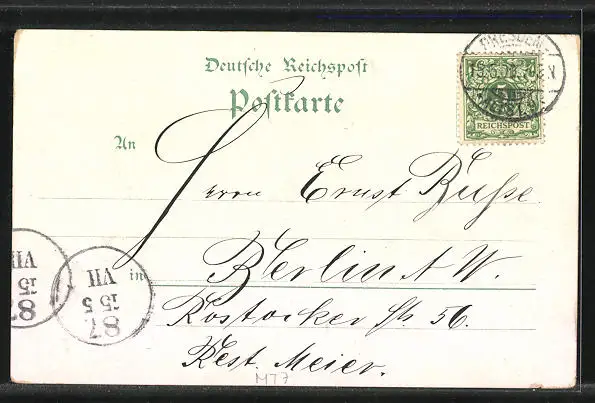 Deutsche Reichspost
Postkarte
DRESDEN
5
REICHSPOST
An
Herrn Ernst Buße
in Berlin N W.
Rostocker Str 56.
Rest. Meier.
VII
15 5
87
VII
15
87
M77